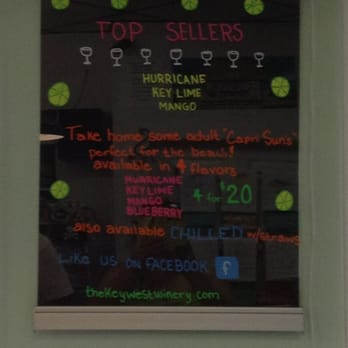 TOP SELLERS
HURRICANE
KEY LIME
MANGO
Take home some adult "Capri Suns"
perfect for the beach!
available in 4 flavors
HURRICANE
KEY LIME
MANGO
BLUEBERRY
4 for $20
also available CHILLED w/straws
Like us on FACEBOOK f
thekeywestwinery.com